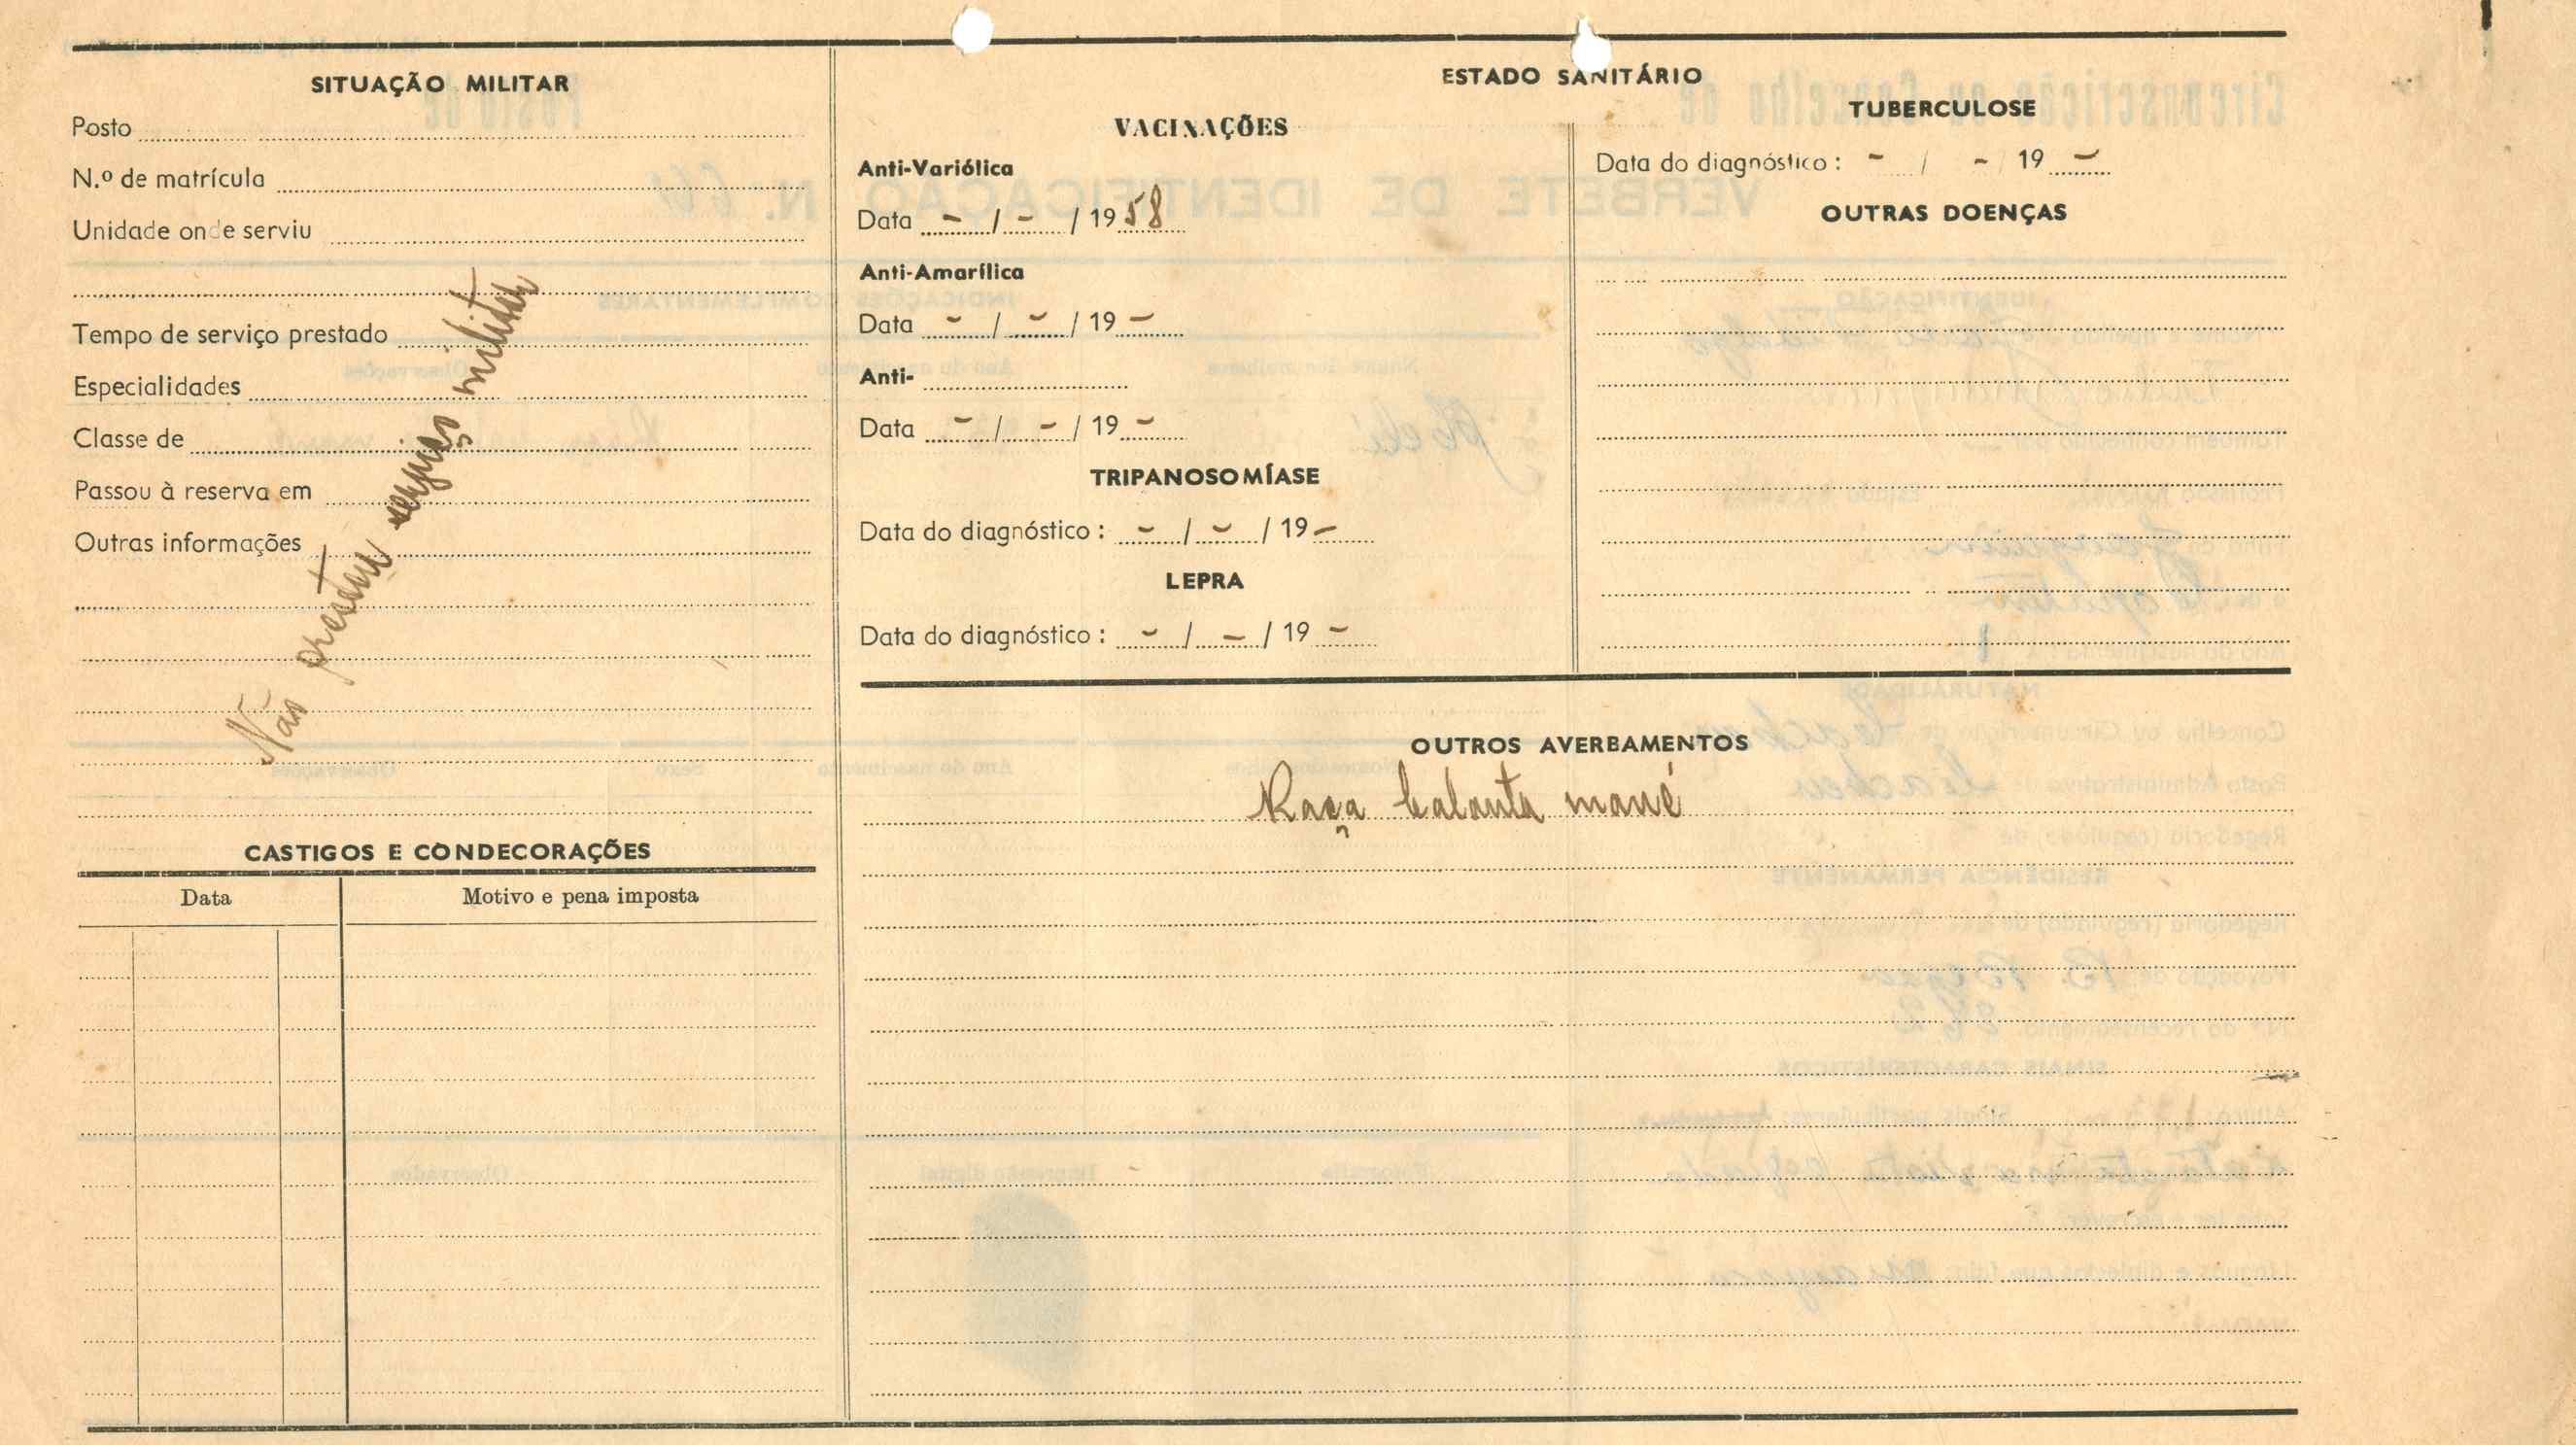 SITUAÇÃO MILITAR
Posto
N.º de matrícula
Unidade onde serviu
Tempo de serviço prestado
Especialidades
Classe de
Passou à reserva em
Outras informações
Não prestou serviço militar
CASTIGOS E CONDECORAÇÕES
Data Motivo e pena imposta
ESTADO SANITÁRIO
VACINAÇÕES
Anti-Variólica
Data - / - / 1958
Anti-Amarílica
Data - / - / 19 -
Anti-
Data - / - / 19 -
TRIPANOSOMÍASE
Data do diagnóstico : - / - / 19 -
LEPRA
Data do diagnóstico : - / - / 19 -
TUBERCULOSE
Data do diagnóstico : - / - / 19 -
OUTRAS DOENÇAS
OUTROS AVERBAMENTOS
Raça balanta mané